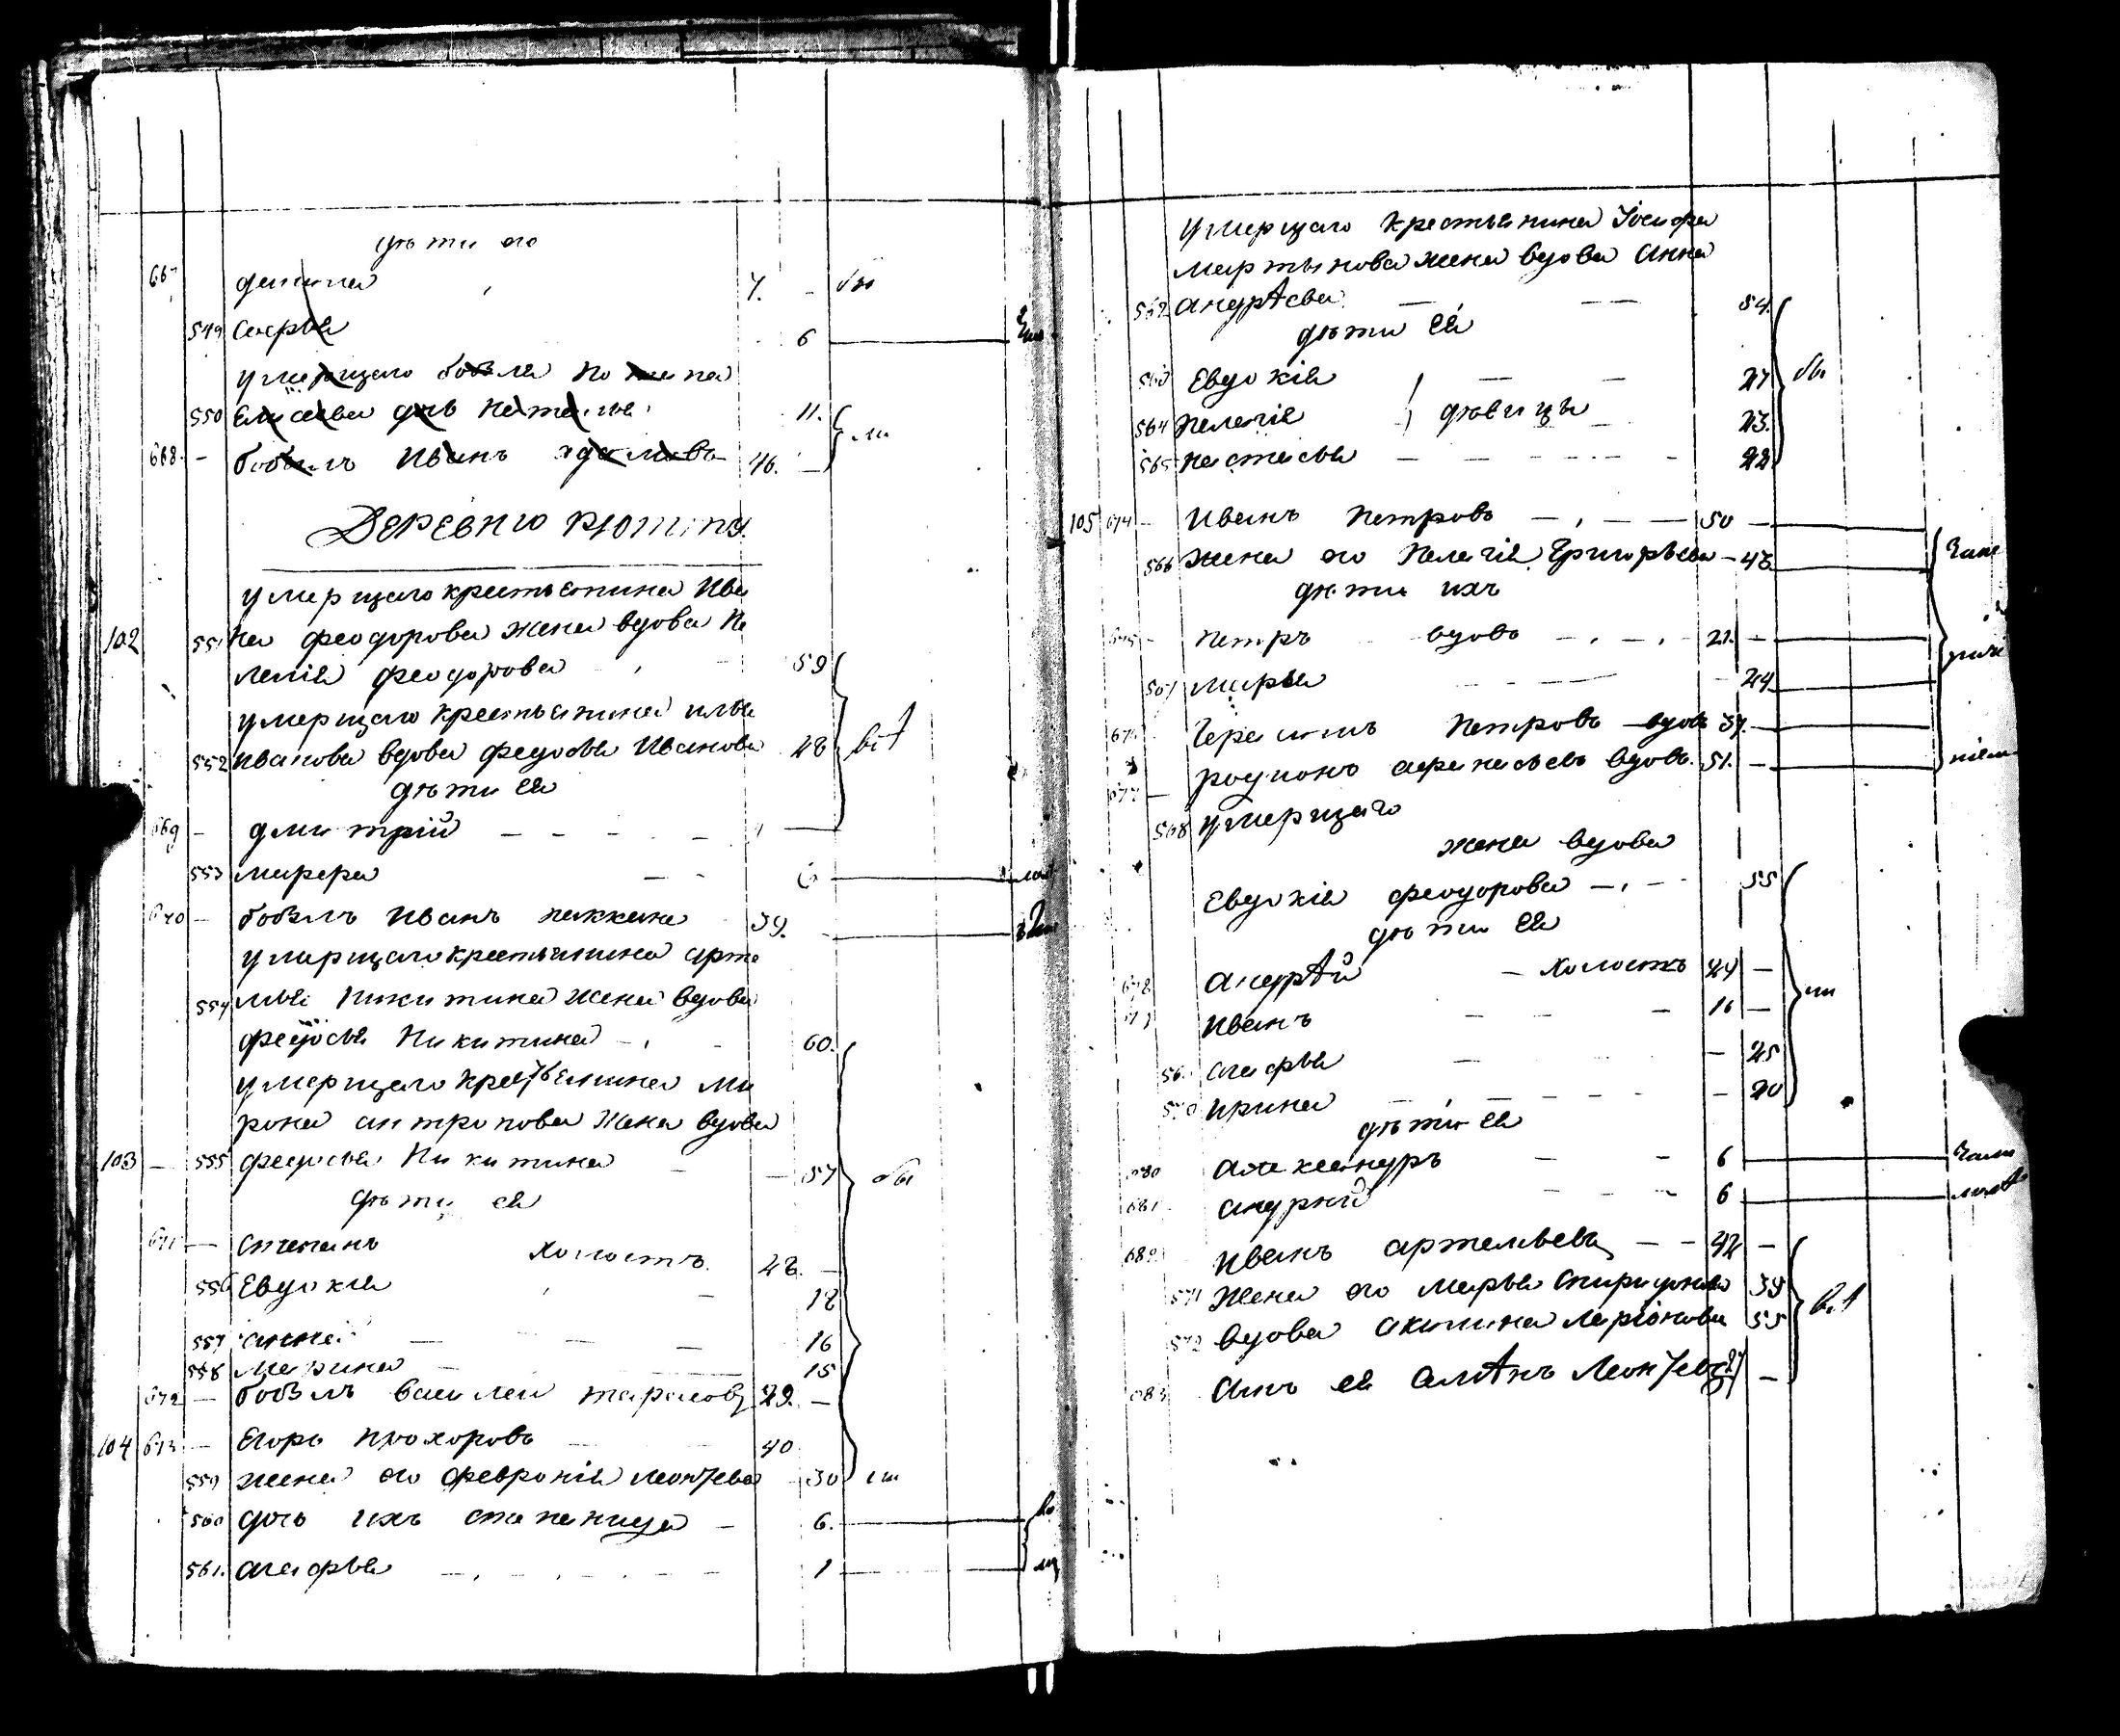 дѣти его
667 Данила 7. – бы
549 Софья 6
умершаго бобыля
550 Елисеева дчь Наталья 11.
668. – бобыль Иванъ Адамовъ 46. –
Деревню Рютину.
умершаго крестьянина Ива
102 551 на Феодорова жена вдова Пе
лагія Феодорова 59
умершаго крестьянина Ильи
552 Иванова вдова Федосья Иванова 48 всѣ
дѣти ея
669 – Дмитрій – – – –
553 Марфа – – 6
670 – бобыль Иванъ 39.
умершаго крестьянина Арте
554 мья Никитина жена вдова
Федосья Никитина – 60.
умершаго крестьянина Ми
рона Антропова жена вдова
103 – 555 Федосья Никитина – – 57 бы
дѣти ея
671 – Степанъ холостъ. 28. –
556 Евдокія – 18
557 Анна – – – 16
558 Марина – 15
672 – бобыль Василей Тарасовъ 29. –
104 673 – Егоръ Прохоровъ 40
559 жена его Февронія Леонтьева 30 ли
560 дочь ихъ Степанида – 6.
561. Агафья – 1
умершаго крестьянина Іосифа
Мартынова жена вдова Анна
562 Андрѣева – – 54.
дѣти ея
563 Евдокія – – 27 бы
564 Пелагія дѣвицы 23.
565 Настасья – – – 22
105 674 – Иванъ Петровъ – – – 50 –
566 жена его Пелагія Григорьева – 48
дѣти ихъ
675 – Петръ вдовъ – – 21. –
567 Марья 24
676 Герасимъ Петровъ – вдовъ 37. –
677 – Родионъ Афанасьевъ вдовъ. 51. –
568 умершаго
жена вдова
Евдокія Феодорова – – 55
дѣти ея
678 Андрѣй – холостъ 24 –
679 Иванъ – – – 16 – ли
569 Агафья – – 25
570 Ирина – – – – – 20
дѣти ея
680 Александръ – – 6
681 Андрей – – – 6
682 Иванъ Артемьевъ – – 42 –
571 жена его Марья Спиридонова 39
572 вдова Акилина Ларіонова 55 всѣ
683 сынъ ея Леонтьевъ 27 –